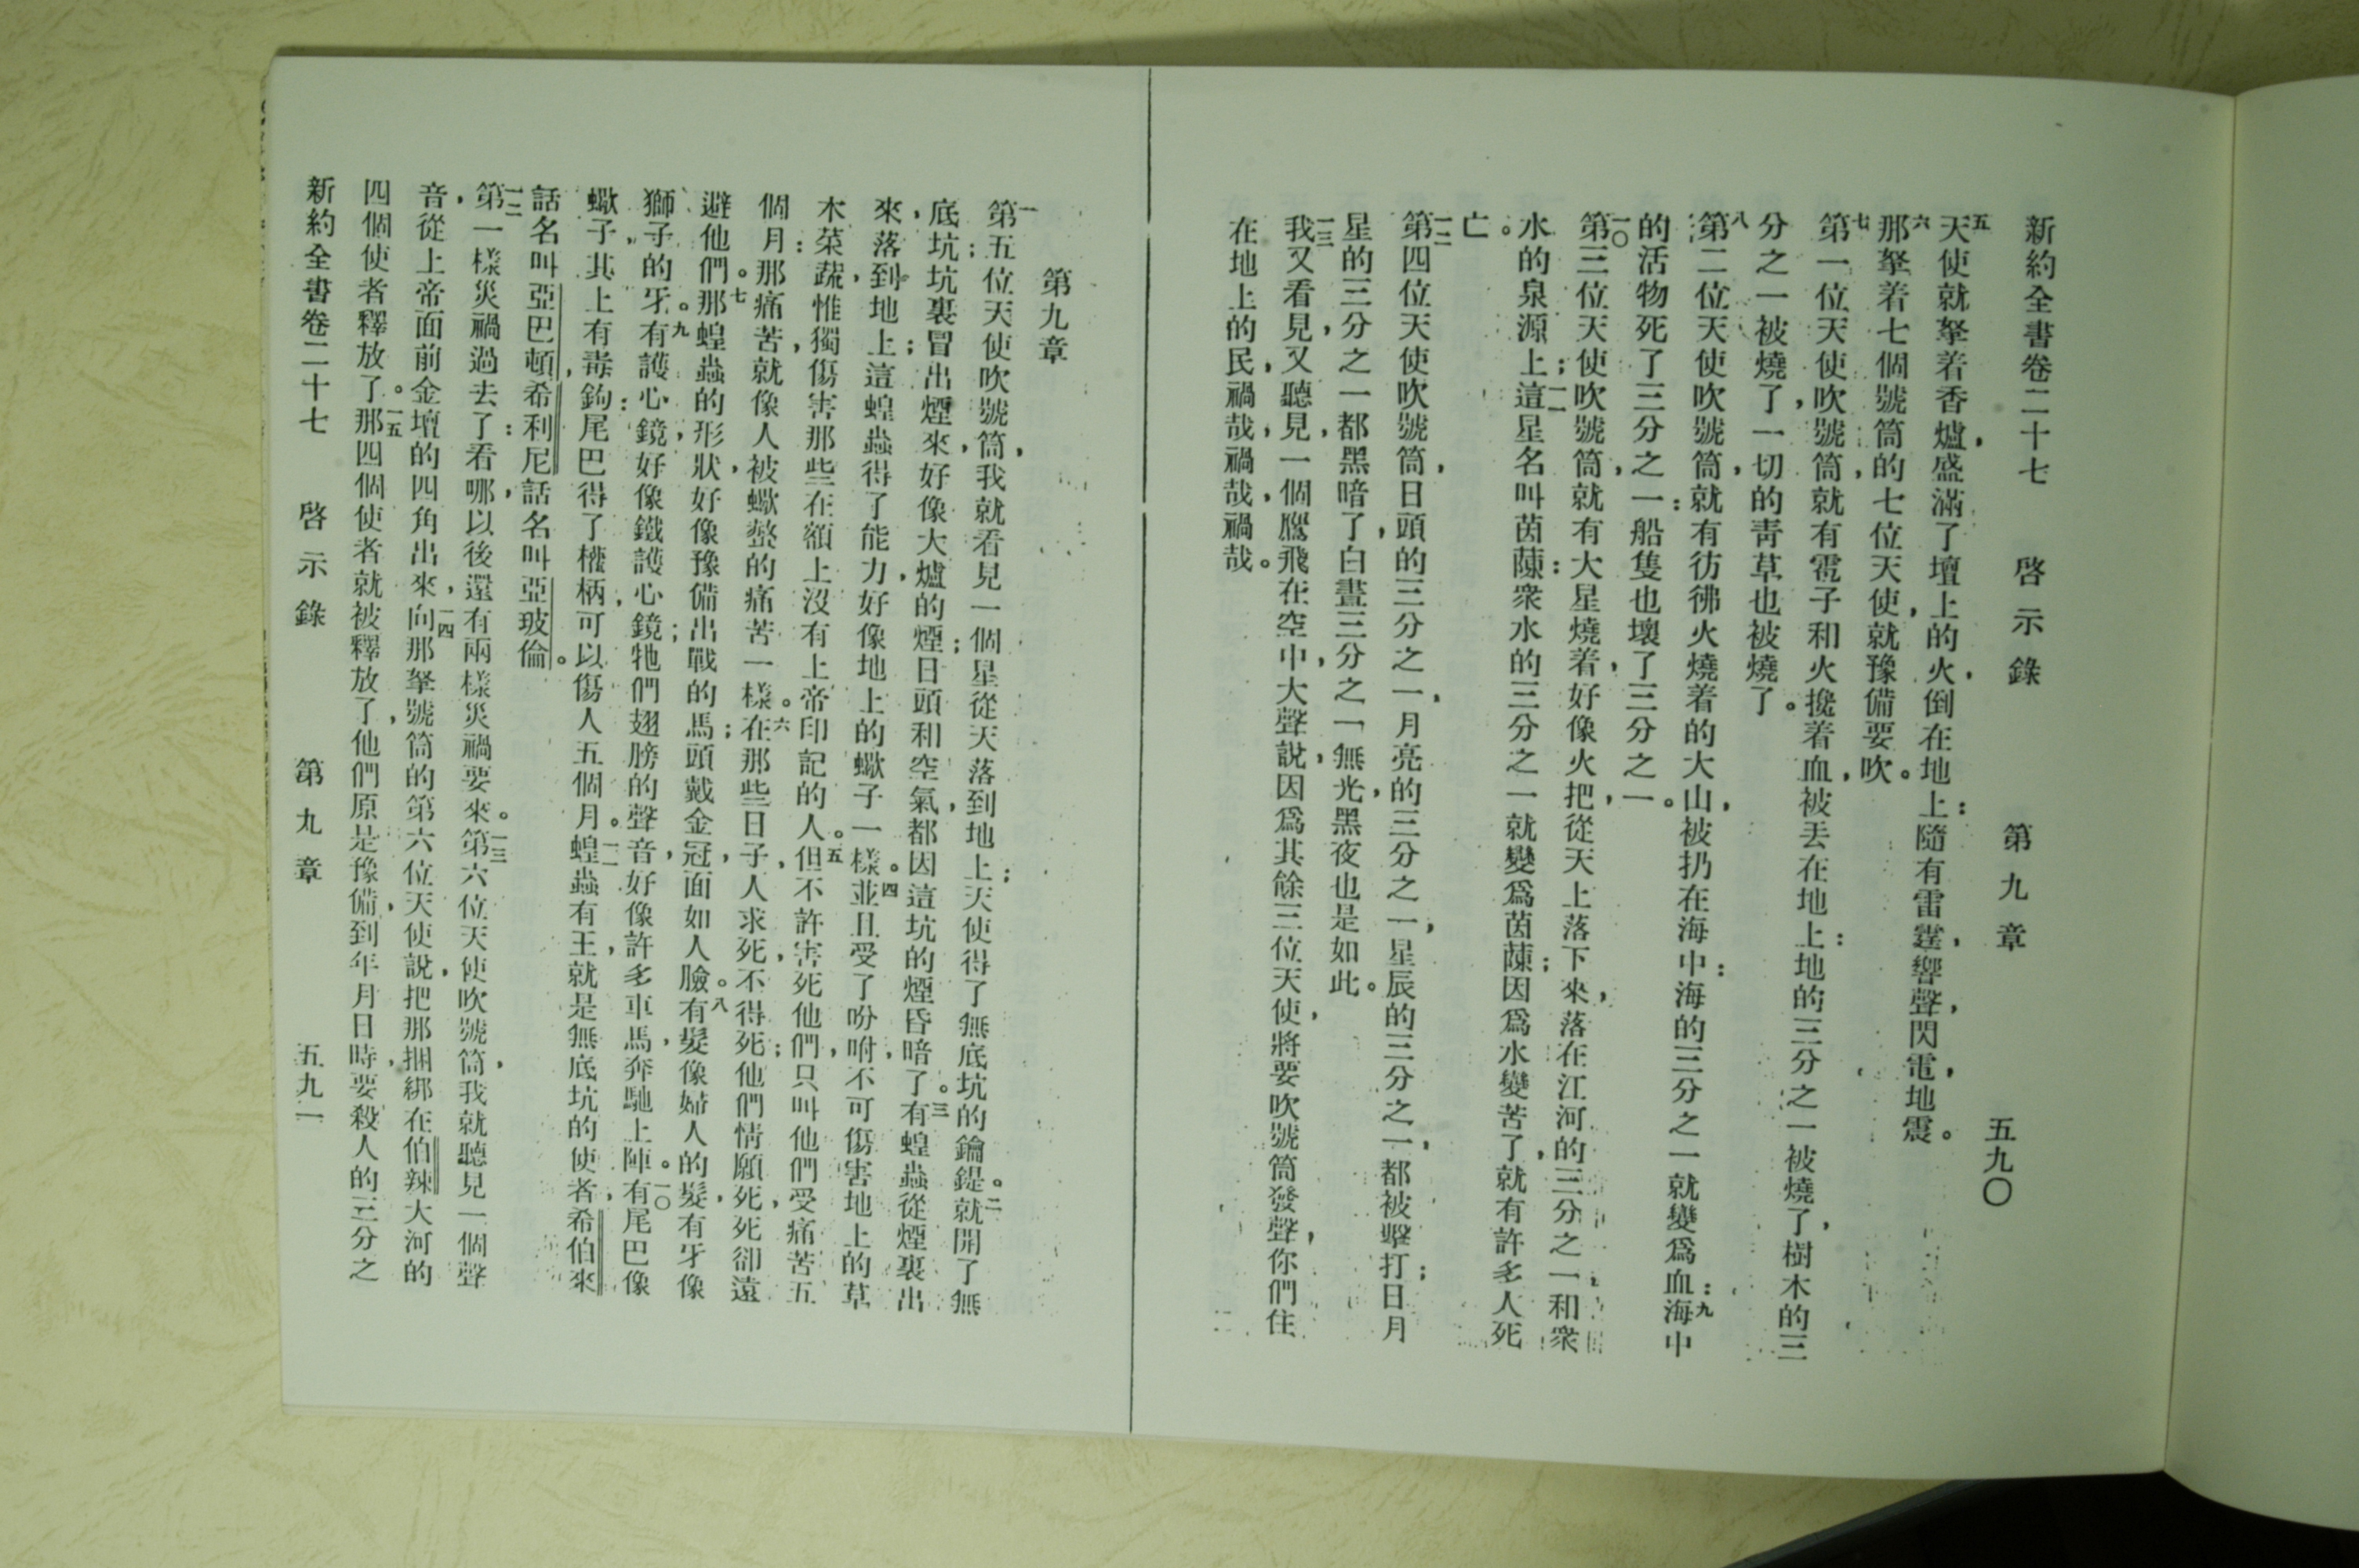 新約全書卷二十七　啓示錄　第九章　五九〇
五天使就拏着香爐，盛滿了壇上的火，倒在地上：隨有雷霆，響聲，閃電，地震。
六那拏着七個號筒的七位天使，就豫備要吹。
七第一位天使吹號筒，就有雹子和火攙着血，被丟在地上：地的三分之一被燒了，樹木的三
分之一被燒了，一切的靑草也被燒了。
八第二位天使吹號筒，就有彷彿火燒着的大山，被扔在海中：海的三分之一就變爲血：九海中
的活物死了三分之一：船隻也壞了三分之一。
一〇第三位天使吹號筒，就有大星燒着，好像火把，從天上落下來，落在江河的三分之一，和衆
水的泉源上；一一這星名叫茵蔯：衆水的三分之一就變爲茵蔯；因爲水變苦了，就有許多人死
亡。
一二第四位天使吹號筒，日頭的三分之一，月亮的三分之一，星辰的三分之一，都被擊打；日月
星的三分之一都黑暗了，白晝三分之一無光，黑夜也是如此。
一三我又看見，又聽見，一個鷹飛在空中，大聲說，因爲其餘三位天使，將要吹號筒發聲，你們住
在地上的民，禍哉，禍哉，禍哉。
第九章
一第五位天使吹號筒，我就看見一個星從天落到地上；天使得了無底坑的鑰鍉。二就開了無
底坑；坑裏冒出煙來，好像大爐的煙；日頭和空氣，都因這坑的煙昏暗了。三有蝗蟲從煙裏出
來，落到地上；這蝗蟲得了能力，好像地上的蠍子一樣。四並且受了吩咐，不可傷害地上的草
木菜蔬，惟獨傷害那些在額上沒有上帝印記的人。五但不許害死他們，只叫他們受痛苦五
個月：那痛苦，就像人被蠍螫的痛苦一樣。六在那些日子，人求死，不得死；他們情願死，死卻遠
避他們。七那蝗蟲的形狀，好像豫備出戰的馬；頭戴金冠，面如人臉。八有髮像婦人的髮，有牙像
獅子的牙。九有護心鏡，好像鐵護心鏡；牠們翅膀的聲音，好像許多車馬，奔馳上陣。一〇有尾巴像
蠍子，其上有毒鉤：尾巴得了權柄，可以傷人五個月。一一蝗蟲有王，就是無底坑的使者，希伯來
話名叫亞巴頓，希利尼話名叫亞玻倫。
一二第一樣災禍過去了：看哪，以後還有兩樣災禍要來。一三第六位天使吹號筒，我就聽見一個聲
音，從上帝面前金壇的四角出來，一四向那拏號筒的第六位天使說，把那捆綁在伯辣大河的
四個使者釋放了。一五那四個使者就被釋放了，他們原是豫備，到年月日時，要殺人的三分之
新約全書卷二十七　啓示錄　第九章　五九一